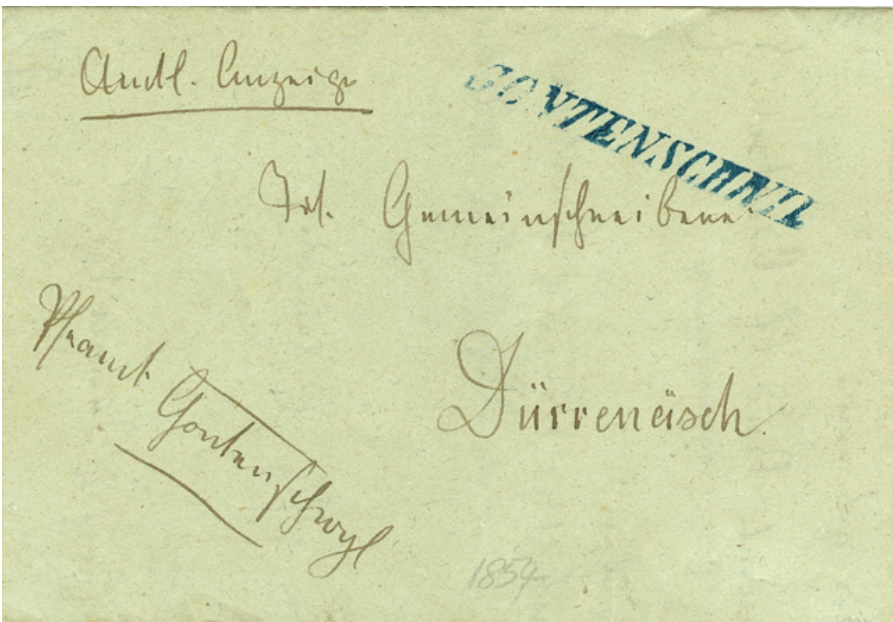 Amtl. Anzeige
GONTENSCHWIL
Tit. Gemeinschreiberei
Pframt
Gontenschwyl
Dürrenäsch.
1854